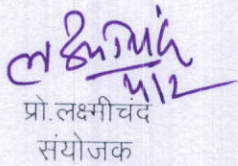 प्रो. लक्ष्मीचंद
संयोजक